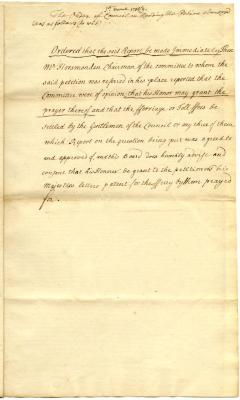 The Order of Council on Reading the Petition
was as follows to wit
Ordered that the said Report be made Immediately. Then
Mr Horsmonden Chairman of the committee to whom the
said petition was referred in his place reported that the
Committee were of opinion, that his Honour may grant the
prayer thereof and that the fferriage or Toll ffees be
settled by the Gentlemen of the Council or any three of them
which Report on the question being put was agreed to
and approved of and this Board does humbly advise and
consent that his Honour do grant to the petitioners his
Majesties letters patent for the fferry by them prayed
for.